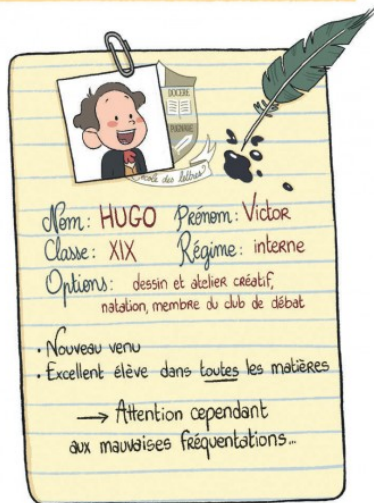 DOCERE
PUGNARE
École des lettres
Nom: HUGO Prénom: Victor
Classe: XIX Régime: interne
Options: dessin et atelier créatif,
natation, membre du club de débat
• Nouveau venu
• Excellent élève dans toutes les matières
→ Attention cependant
aux mauvaises fréquentations...